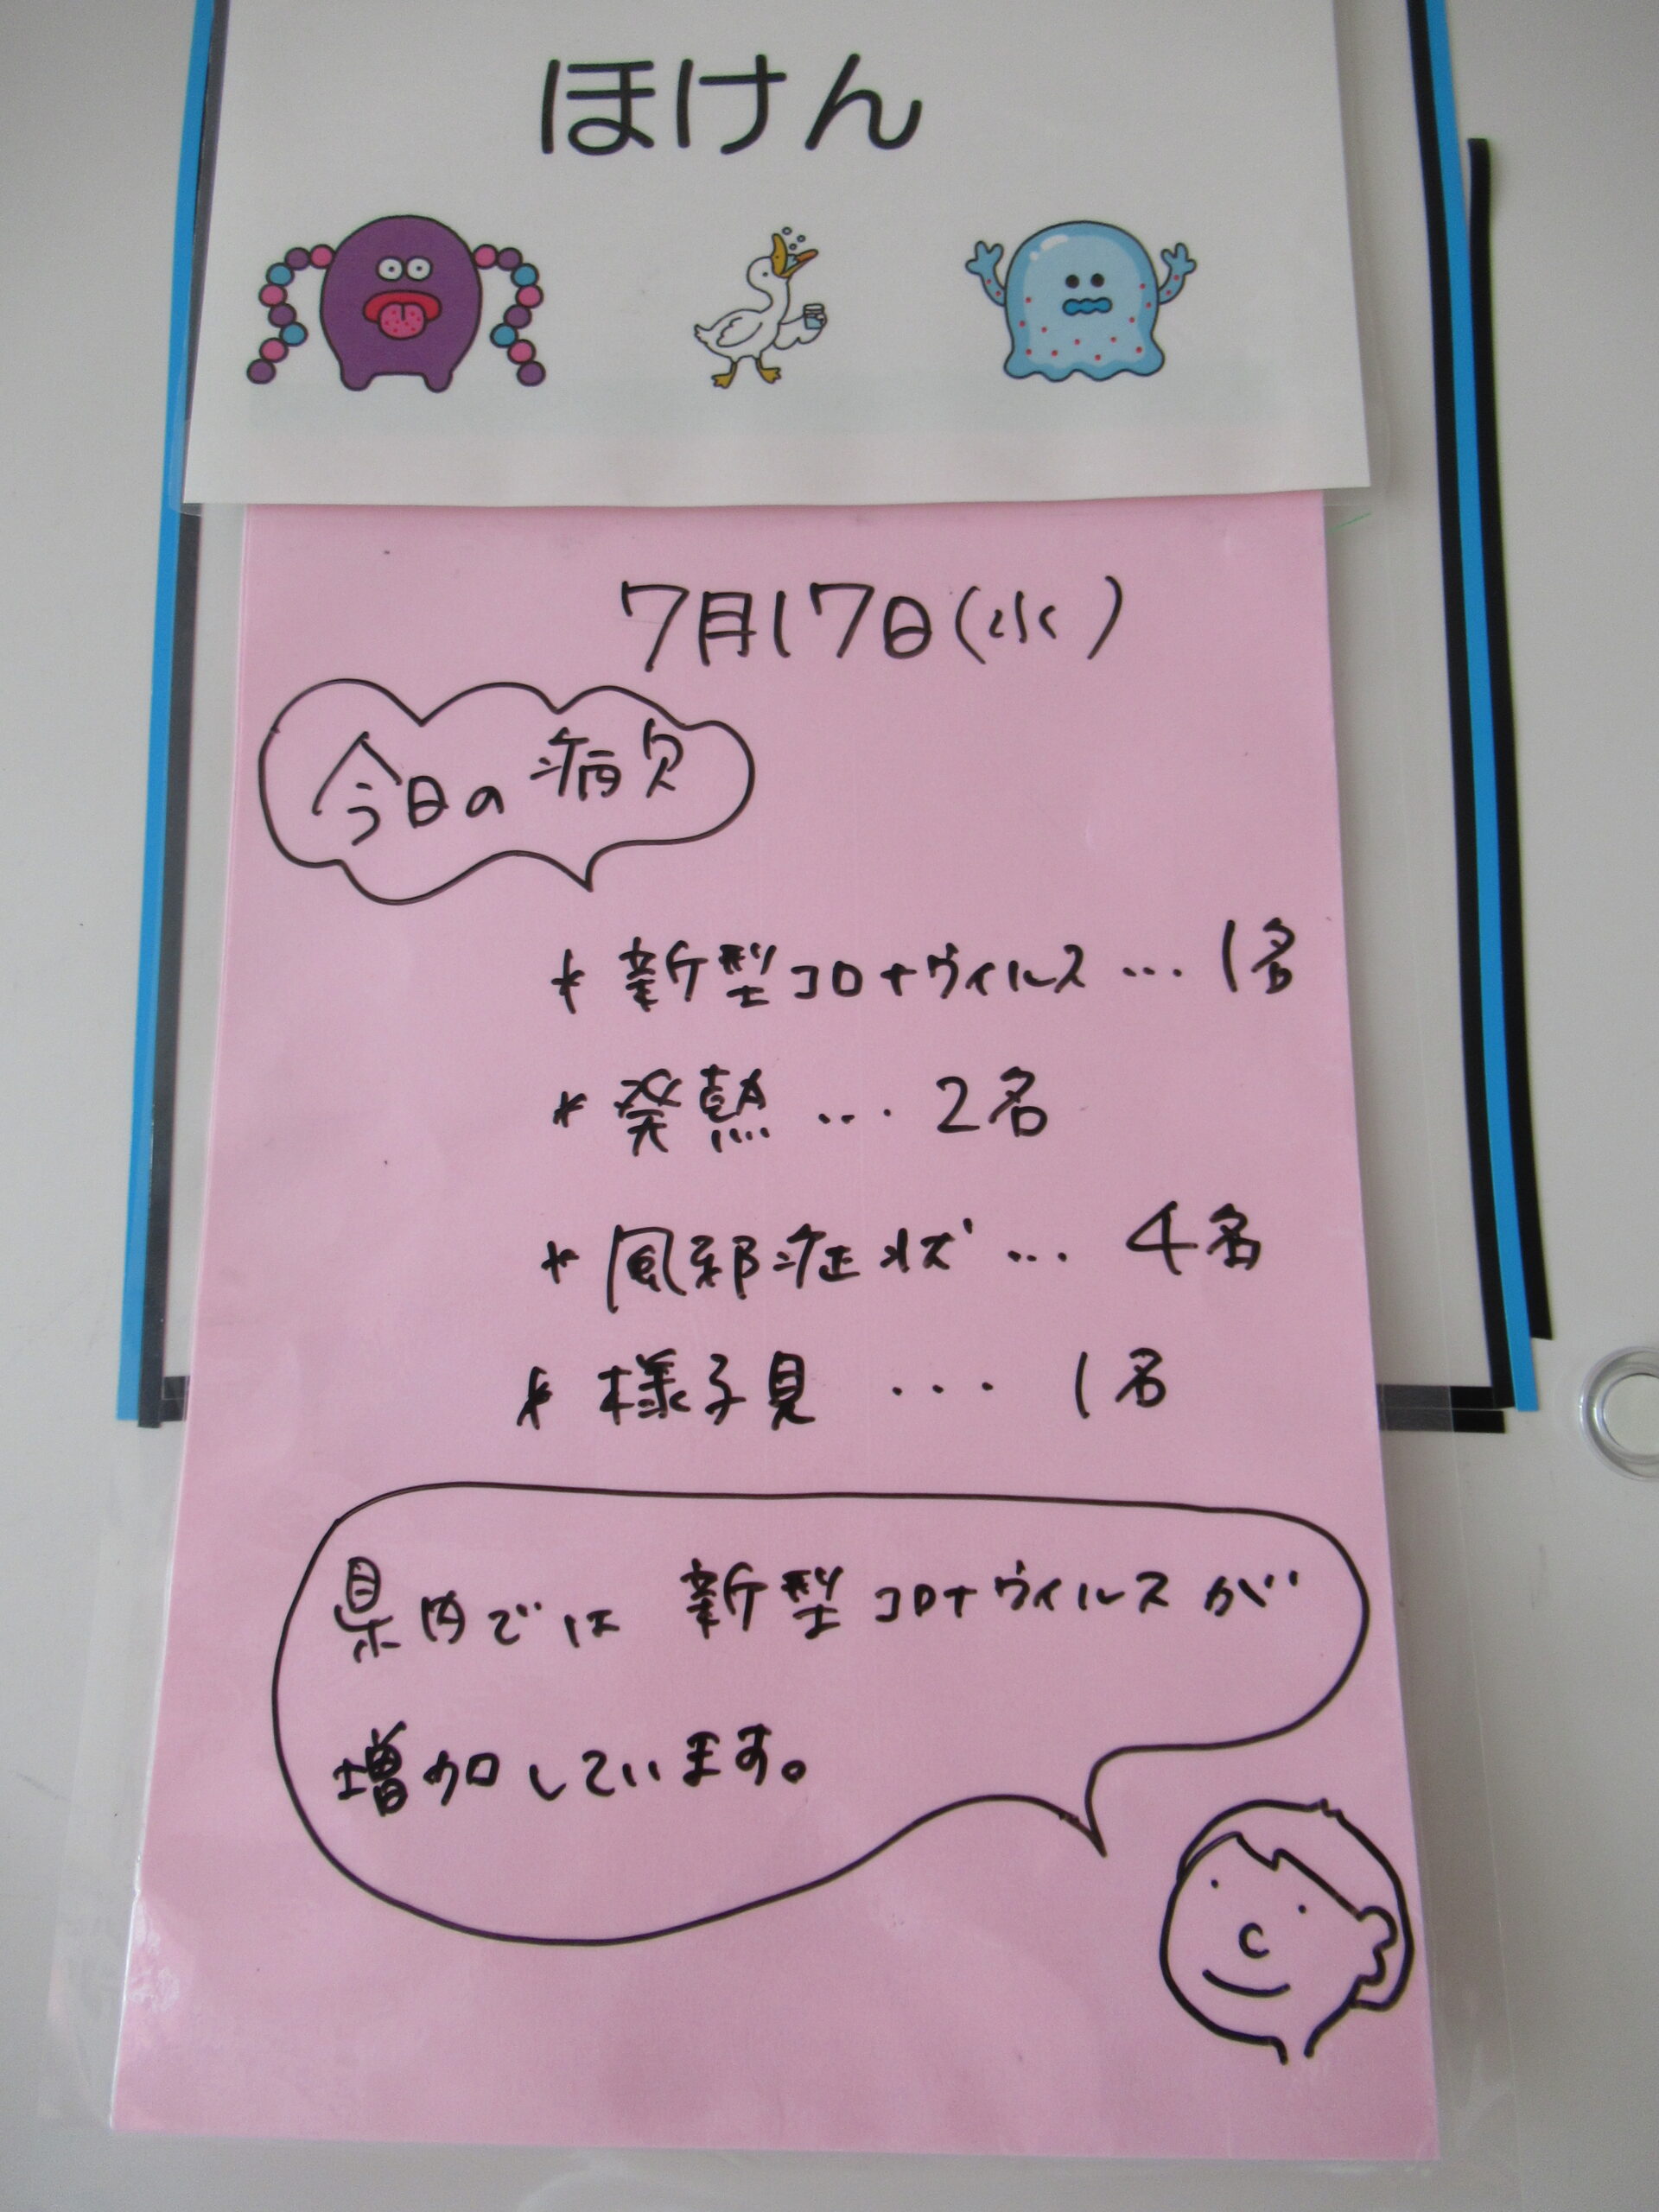 ほけん
7月17日(水)
今日の病欠
* 新型コロナウィルス … 1名
* 発熱 … 2名
* 風邪症状 … 4名
* 様子見 … 1名
県内では 新型コロナウィルスが
増加しています。